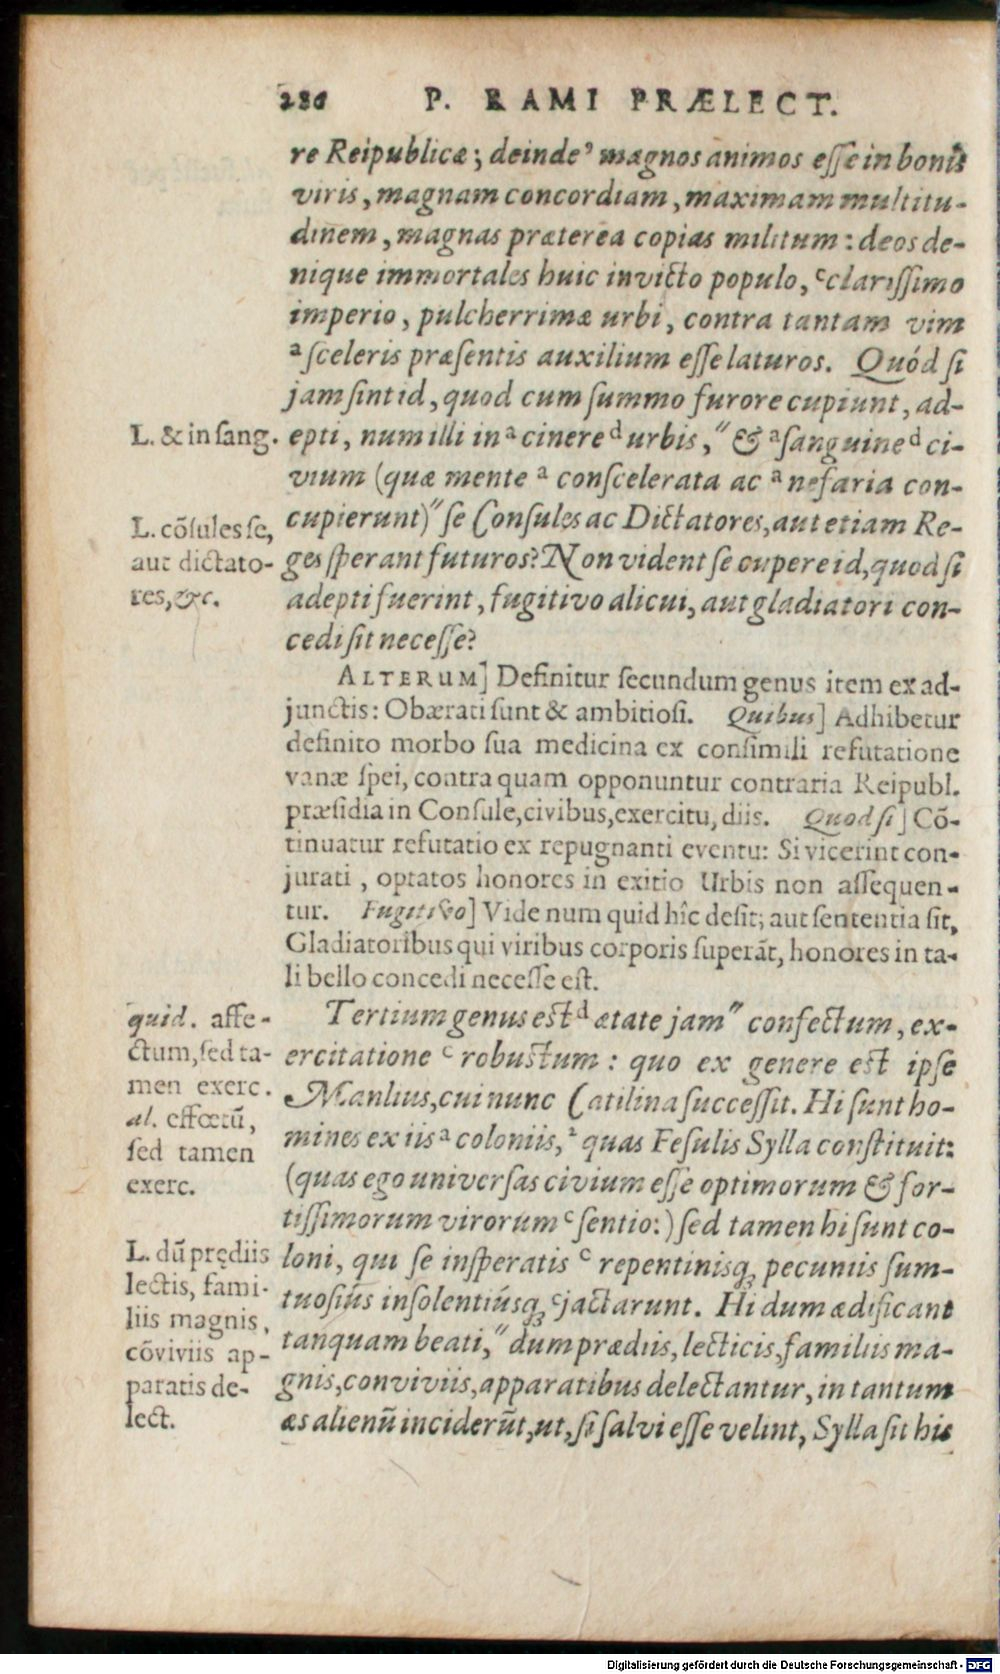 286 P. RAMI PRÆLECT.
re Reipublicæ; deinde magnos animos esse in bonis
viris, magnam concordiam, maximam multitu-
dinem, magnas præterea copias militum: deos de-
nique immortales huic invicto populo, ᶜclarissimo
imperio, pulcherrimæ urbi, contra tantam vim
ᵃsceleris præsentis auxilium esse laturos. Quód si
jam sint id, quod cum summo furore cupiunt, ad-
L. & in sang.
epti, num illi in ᵃcinere ᵈurbis, ″ & ᵃsanguine ᵈci-
vium (quæ mente ᵃ conscelerata ac ᵃ nefaria con-
L. cõsules se,
aut dictato-
res, &c.
cupierunt) ″ se Consules ac Dictatores, aut etiam Re-
ges sperant futuros? Non vident se cupere id, quod si
adepti fuerint, fugitivo alicui, aut gladiatori con-
cedi sit necesse?
ALTERUM] Definitur secundum genus item ex ad-
junctis: Obærati sunt & ambitiosi. Quibus] Adhibetur
definito morbo sua medicina ex consimili refutatione
vanæ spei, contra quam opponuntur contraria Reipubl.
præsidia in Consule, civibus, exercitu, diis. Quod si] Cõ-
tinuatur refutatio ex repugnanti eventu: Si vicerint con-
jurati, optatos honores in exitio Urbis non assequen-
tur. Fugitivo] Vide num quid hîc desit; aut sententia sit,
Gladiatoribus qui viribus corporis superãt, honores in ta-
li bello concedi necesse est.
quid. affe-
ctum, sed ta-
men exerc.
al. effœtũ,
sed tamen
exerc.
Tertium genus est ᵈ ætate jam ″ confectum, ex-
ercitatione ᶜ robustum: quo ex genere est ipse
Manlius, cui nunc Catilina successit. Hi sunt ho-
mines ex iis ᵃ coloniis, ² quas Fesulis Sylla constituit:
(quas ego universas civium esse optimorum & for-
tissimorum virorum ᶜ sentio:) sed tamen hi sunt co-
L. dũ prędiis
lectis, fami-
liis magnis,
cõviviis ap-
paratis de-
lect.
loni, qui se insperatis ᶜ repentinisq́ꝫ pecuniis sum-
tuosiùs insolentiúsqꝫ ᶜjactarunt. Hi dum ædificant
tanquam beati, ″ dum prædiis, lecticis, familiis ma-
gnis, conviviis, apparatibus delectantur, in tantum
æs alienũ inciderũt, ut, si salvi esse velint, Sylla sit his
Digitalisierung gefördert durch die Deutsche Forschungsgemeinschaft - DFG